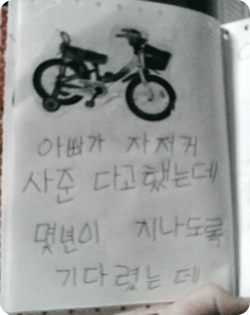 아빠가 자저거
사준 다고했는데
몇번이 지나도록
기다렸는 데